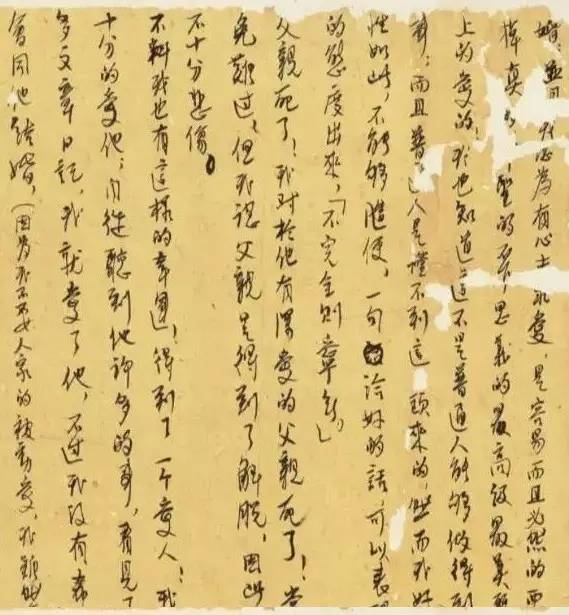 婚；並且我認為有心上的愛，是容易而且必然的西
樣真的，聖的不可思議的最高級最美麗
上的愛的！我也知道這不是普通人能夠做得到
料；而且普，人是墮不到這頭來的，然而我好
性如此，不能夠隨便，一句恰好的話可以表現
的態度出來，「不完全則寧無。」
父親死了！我對於他有深愛的父親死了！當
免難過，但我認父親是得到了解脫，因此
不十分悲傷。
不料我也有這樣的幸運，得到了一个愛人！我
十分的愛他；自從聽到他許多的事，看見了
多文章日記，我就愛了他，不過我沒有希
會同他結婚，（因為我不女人家的被動愛，我雖然